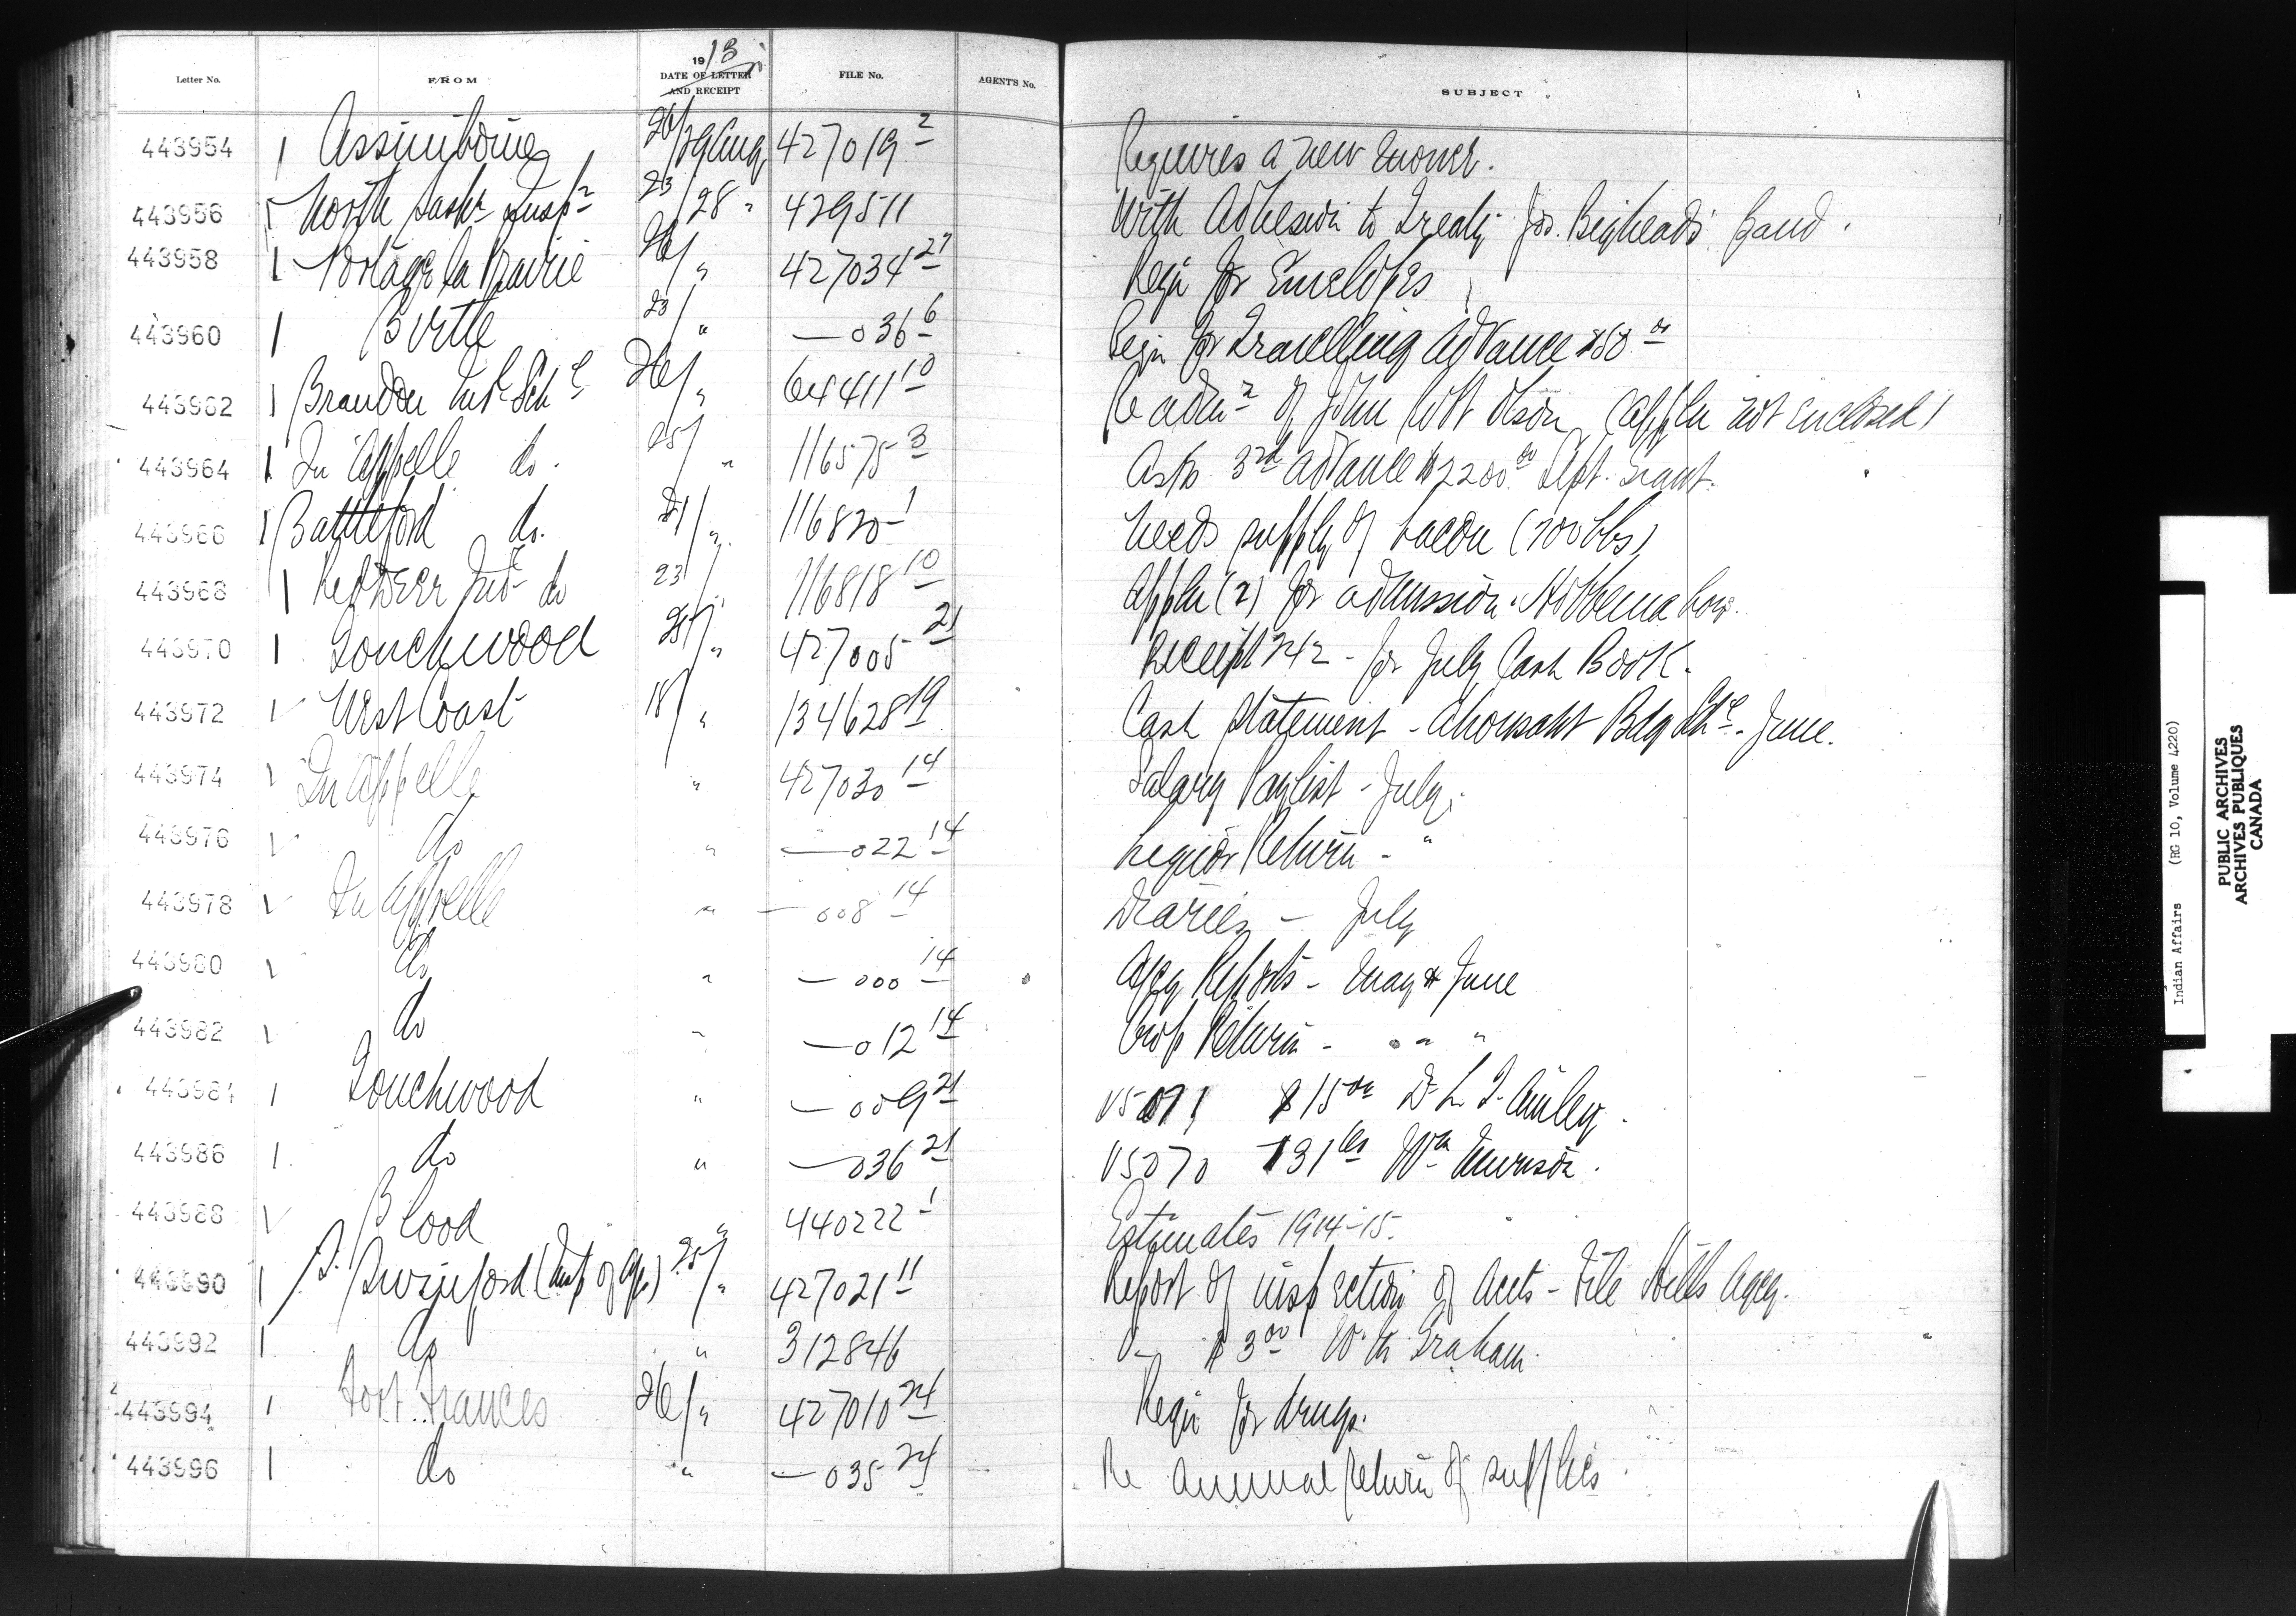 Letter No. FROM 1913 DATE OF LETTER AND RECEIPT FILE No. AGENT'S No. SUBJECT
443954 1 Assiniboine 26/29 Aug 427019-2 Requires a new mower.
443956 North Sask. Insp. 23/28 " 429511 With Adhesion to Treaty for Bighead's Band.
443958 1 Portage la Prairie 26/" 427034-27 Reqn for Envelopes
443960 1 Birtle 23/" —036-6 Reqn for Travelling Advance $50 00
443962 1 Brandon Ind. Schl 26/" 64411-10 Re admn of John Olson (appln not enclosed)
443964 1 Qu'Appelle do. 25/" 116575-3 Asks 3rd advance $2200 00 Sept. Grant.
443966 1 Battleford do. 21/" 116820-1 Needs supply of bacon (700 lbs)
443968 1 Red Deer Ind do 23/" 116818-10 Appln (2) for admission. Hobbema boys.
443970 1 Touchwood 25/" 427005-21 Receipt 242 - for July Cash Book.
443972 West Coast 18/" 134628-19 Cash Statement - Ahousaht Bdg Schl - June.
443974 Qu'Appelle " 427030-14 Salary Paylist - July.
443976 do " —022-14 Liquor Return - "
443978 Qu'Appelle " —008-14 Diaries - July
443980 do " —000-14 Agcy Reports - May & June
443982 do " —012-14 Crop Return - " "
443984 1 Touchwood " —009-21 V5071 $15 00 Dr
443986 1 do " —036-21 V5070 Wm
443988 Blood " 440222-1 Estimates 1914-15.
443990 1 Swinford (Insp of Ag.) 25/" 427021-11 Report of inspection of Accts - File Hills Agcy.
443992 1 do " 312846 V- $3 00 W. M. Graham.
443994 1 Fort Frances 26/" 427010-24 Reqn for drugs.
443996 1 do " —035-24 Re annual return of supplies.
Indian Affairs (RG 10, Volume 4220)
PUBLIC ARCHIVES
ARCHIVES PUBLIQUES
CANADA